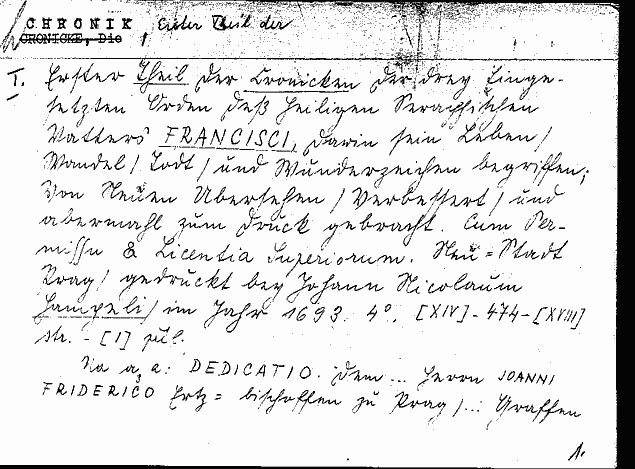 CHRONIK Erster Theil der
CRONICKE, Die
I. Erster Theil der Cronicken der drey Einge-
setzten Orden deß Heiligen Seraphischen
Vatters FRANCISCI, darin sein Leben/
Wandel/ Todt/ und Wunderzeichen begriffen;
Von Neuen Ubersehen/ Verbessert/ und
abermahl zum Druck gebracht. Cum Per-
missu & Licentia Superiorum. Neu=Stadt
Prag/ gedruckt bey Johann Nicolaum
Hampeli/ im Jahr 1693. 4°. [XIV]-474-[XVIII]
str. - [1] příl.
Na a2 a: DEDICATIO. Dem ... Herrn JOANNI
FRIDERICO Ertz=bischoffen zu Prag/... Graffen
1.